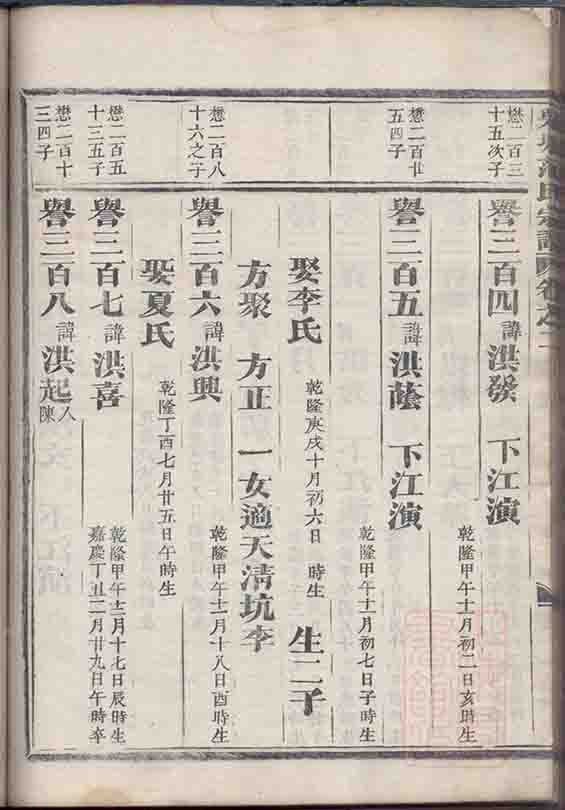 懋二百三
十五次子
譽三百四 諱洪發 下江演 乾隆甲午十月初二日亥時生
懋二百廿
五四子
譽三百五 諱洪蔭 下江演 乾隆甲午十二月初七日子時生
娶李氏 乾隆庚戌十月初六日 時生 生二子
方聚 方正 一女適天清坑李
懋二百八
十六之子
譽三百六 諱洪興 乾隆甲午十二月十八日酉時生
娶夏氏 乾隆丁酉七月廿五日午時生
懋二百五
十三五子
譽三百七 諱洪喜 乾隆甲午十二月十七日辰時生
嘉慶丁丑二月廿九日午時卒
懋二百十
三四子
譽三百八 諱洪起 入陳